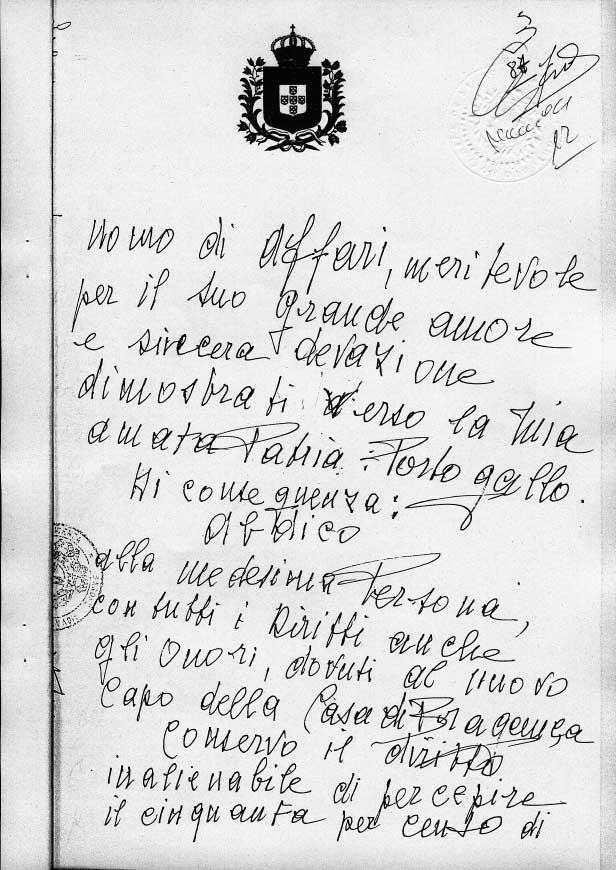 3
uomo di affari, meritevole
per il suo grande amore
e sincera devozione
dimostrati verso la mia
amata Patria: Portogallo.
Di conseguenza:
abdico
alla medesima Persona,
con tutti i Diritti anche
gli Onori, dovuti al nuovo
Capo della Casa di Bragança
Conservo il diritto
inalienabile di percepire
il cinquanta per cento di